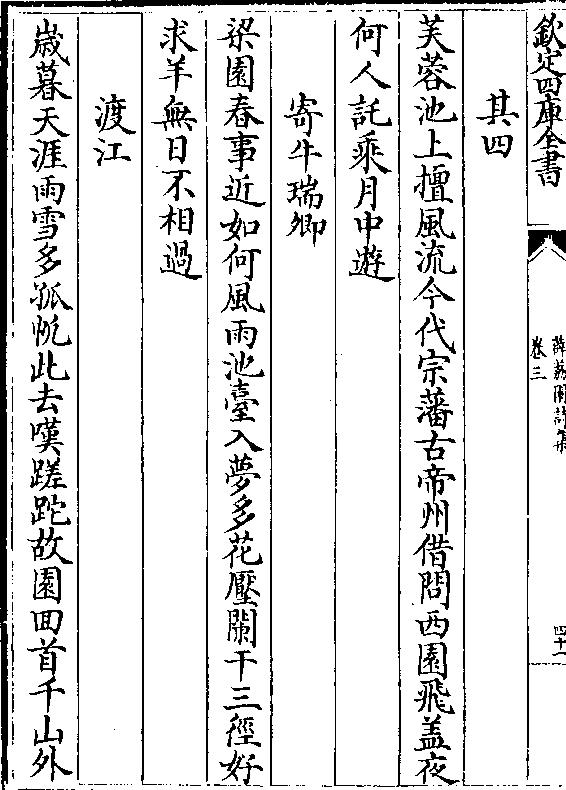 欽定四庫全書
薜荔園詩集
卷三
四十一
其四
芙蓉池上擅風流今代宗藩古帝州借問西園飛盖夜
何人託乘月中遊
寄牛瑞卿
梁園春事近如何風雨池臺入夢多花壓闌干三徑好
求羊無日不相過
渡江
歲暮天涯雨雪多孤帆此去嘆蹉跎故園回首千山外